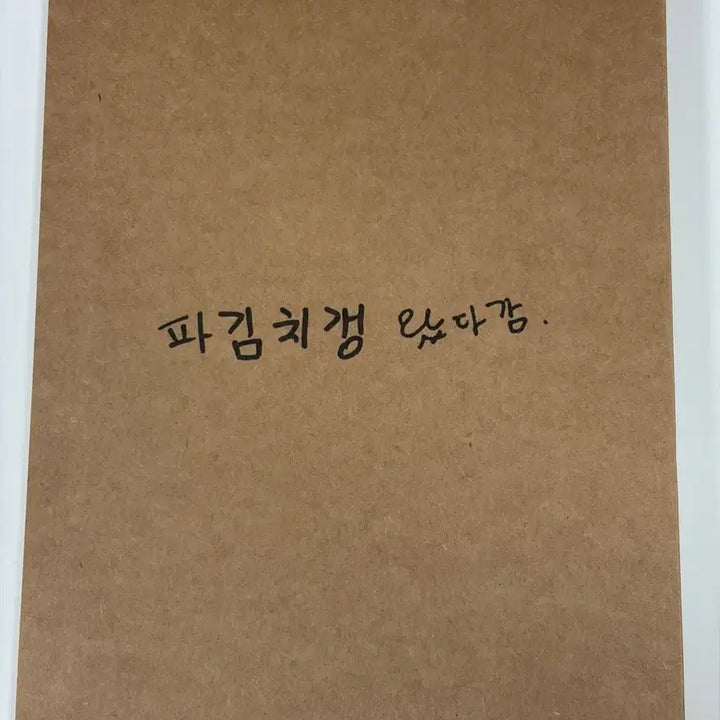 파김치갱 왔다감.